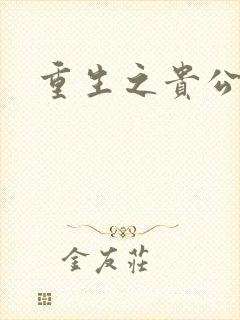 重生之貴公
金友莊